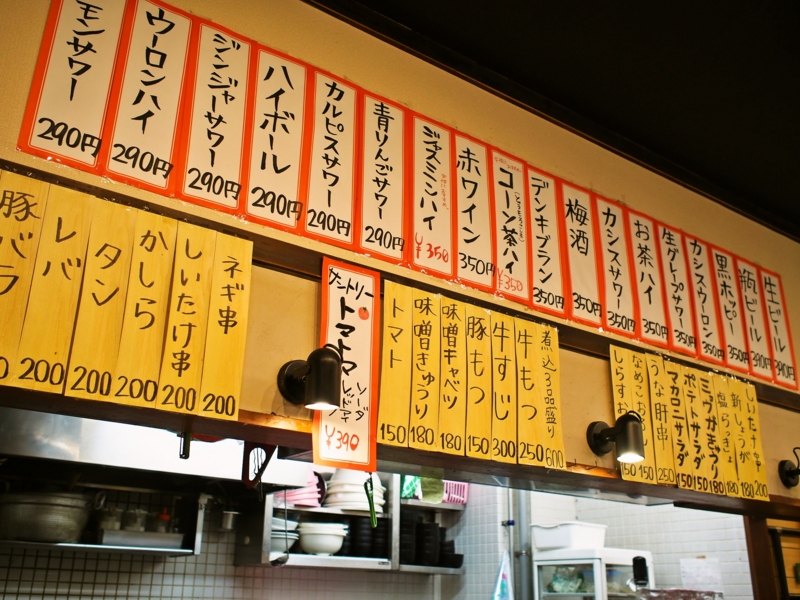 生ビール 390円
瓶ビール 390円
黒ホッピー 350円
カシスウーロン 350円
生グレープサワー 350円
お茶ハイ 350円
カシスサワー 350円
梅酒 350円
デンキブラン 350円
コーン茶ハイ ¥350
赤ワイン 350円
ジャスミンハイ ¥350
青りんごサワー 290円
カルピスサワー 290円
ハイボール 290円
ジンジャーサワー 290円
ウーロンハイ 290円
モンサワー 290円
しいたけ串 200
新しょうが 180
塩らっきょ 180
ミョウがきゅうり 180
ポテトサラダ 150
マカロニサラダ 150
うな肝串 250
なめこ 150
しらすお 150
煮込3品盛り 600
牛もつ 250
牛すじ 300
豚もつ 150
味噌キャベツ 180
味噌きゅうり 180
トマト 150
サントリー
トマトマ
ソーダ
レッドアイ
¥390
ネギ串 200
しいたけ串 200
かしら 200
タン 200
レバ 200
豚バラ 0